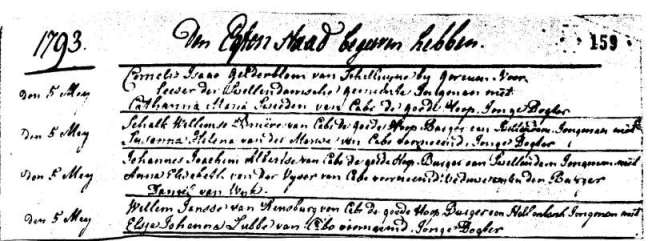 1793. Den Egten Staad begeven hebben. 159
den 5 Mey Cornelis Isaac Gelderblom van Schelluyne by Gorcum. Voor
leeser der Swellendamsche gemeente Jongman met
Catharina Maria van Cabo de goede Hoop. Jonge Dogter
den 5 Mey Schalk Willemse van Cabo de goede Hoop. Burger aan Swellendam Jongman met
Susanna Helena van der Merwe van Cabo voormeend. Jonge Dogter
den 5 Mey Johannes Joachim van Cabo de goede Hop. Burger aan Swellendam Jongman met
Anna Elisabeth van der Vyver van Cabo voormeind. Weduwe van den Burger
van Wyk.
den 5 Mey Willem Jansse van Rensburg van Cabo de goede Hoop. Burger aan Jongman met
Elsje Johanna Lubbe van Cabo voormeind. Jonge Dogter